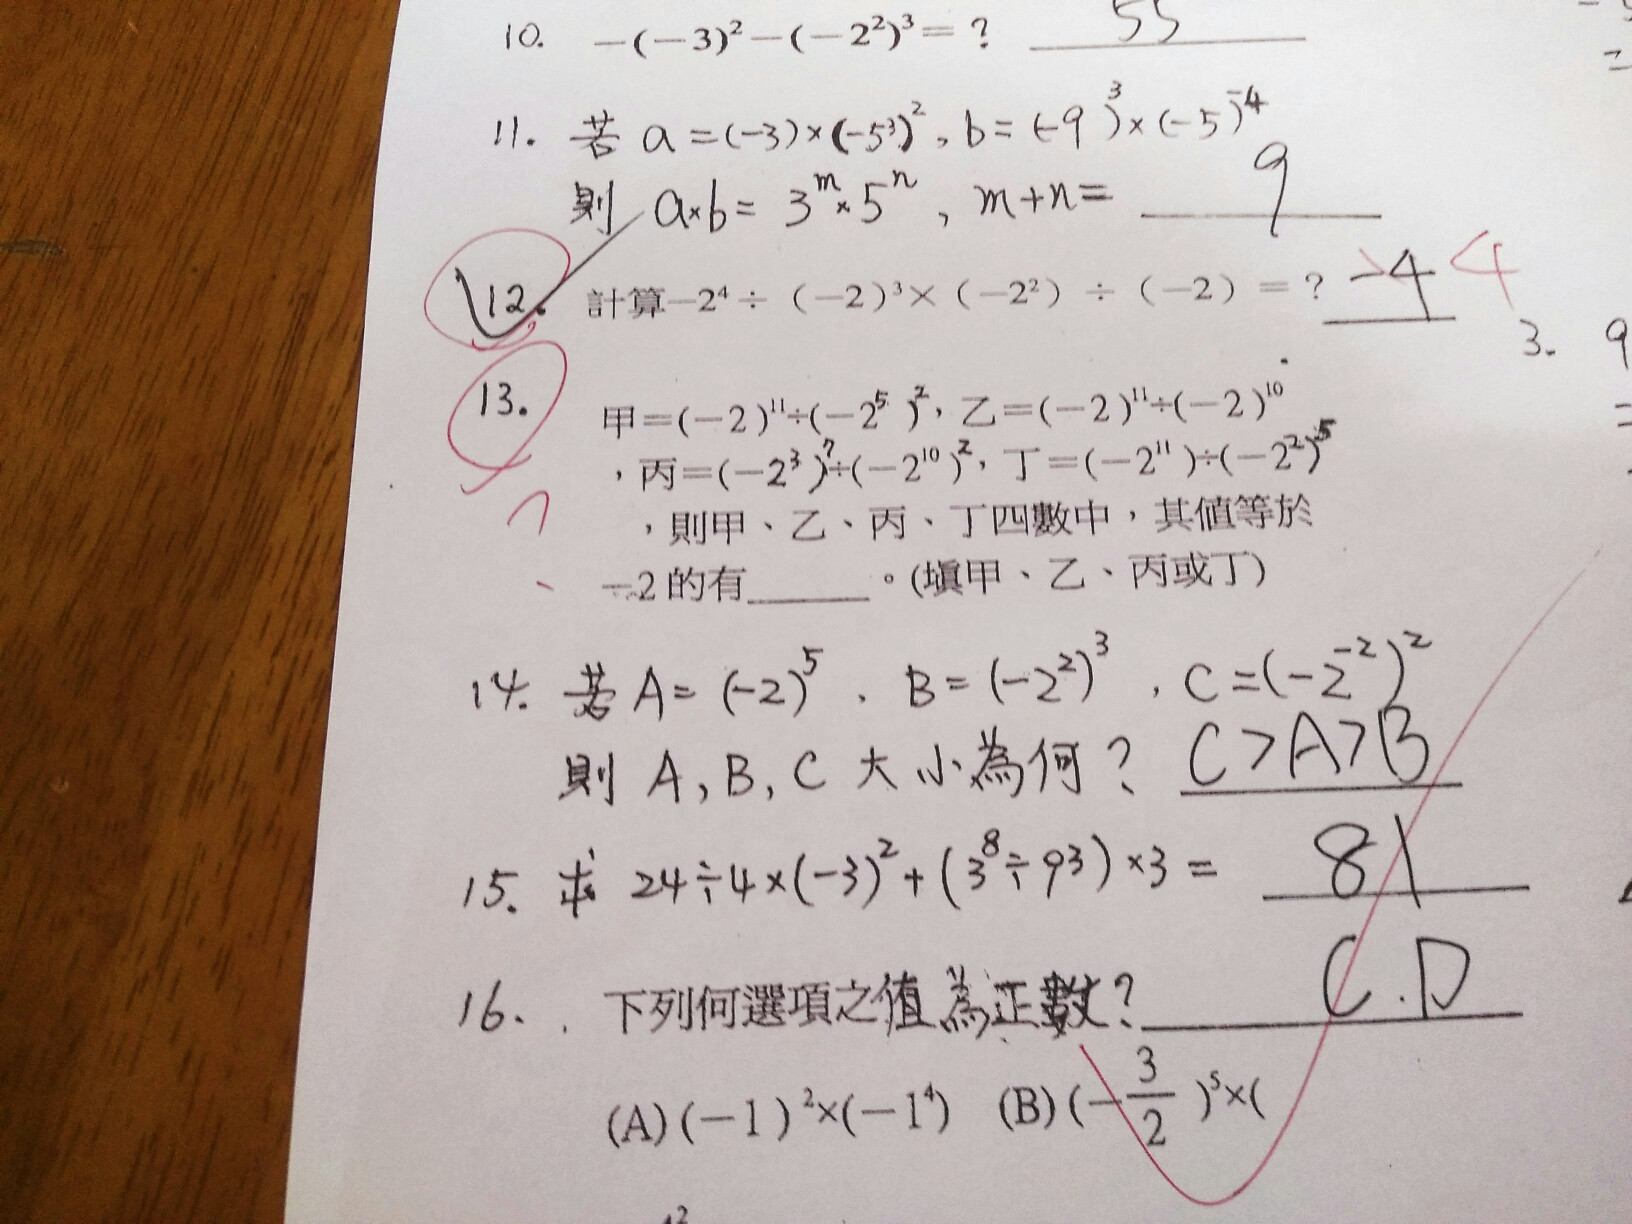 10. －(－3)²－(－2²)³＝？ 55
11. 若 a=(-3)×(-5³)², b=(-9)³×(-5)⁻⁴
則 a×b= 3ᵐ×5ⁿ, m+n= 9
12. 計算－2⁴÷（－2）³×（－2²）÷（－2）＝？ -4 4
3. 9
13. 甲＝(－2)¹¹÷(－2⁵)²，乙＝(－2)¹¹÷(－2)¹⁰
，丙＝(－2³)⁷÷(－2¹⁰)²，丁＝(－2¹¹)÷(－2²)⁵
，則甲、乙、丙、丁四數中，其值等於
－2的有______。(填甲、乙、丙或丁)
14. 若 A= (-2)⁵、B= (-2²)³, C=(-2⁻²)²
則 A, B, C 大小為何？ C>A>B
15. 求 24÷4×(-3)²+(3⁸÷93)×3= 81
16. 下列何選項之值為正數？ C.D
(A)(－1)²×(－1⁴) (B)(－3/2)⁵×(